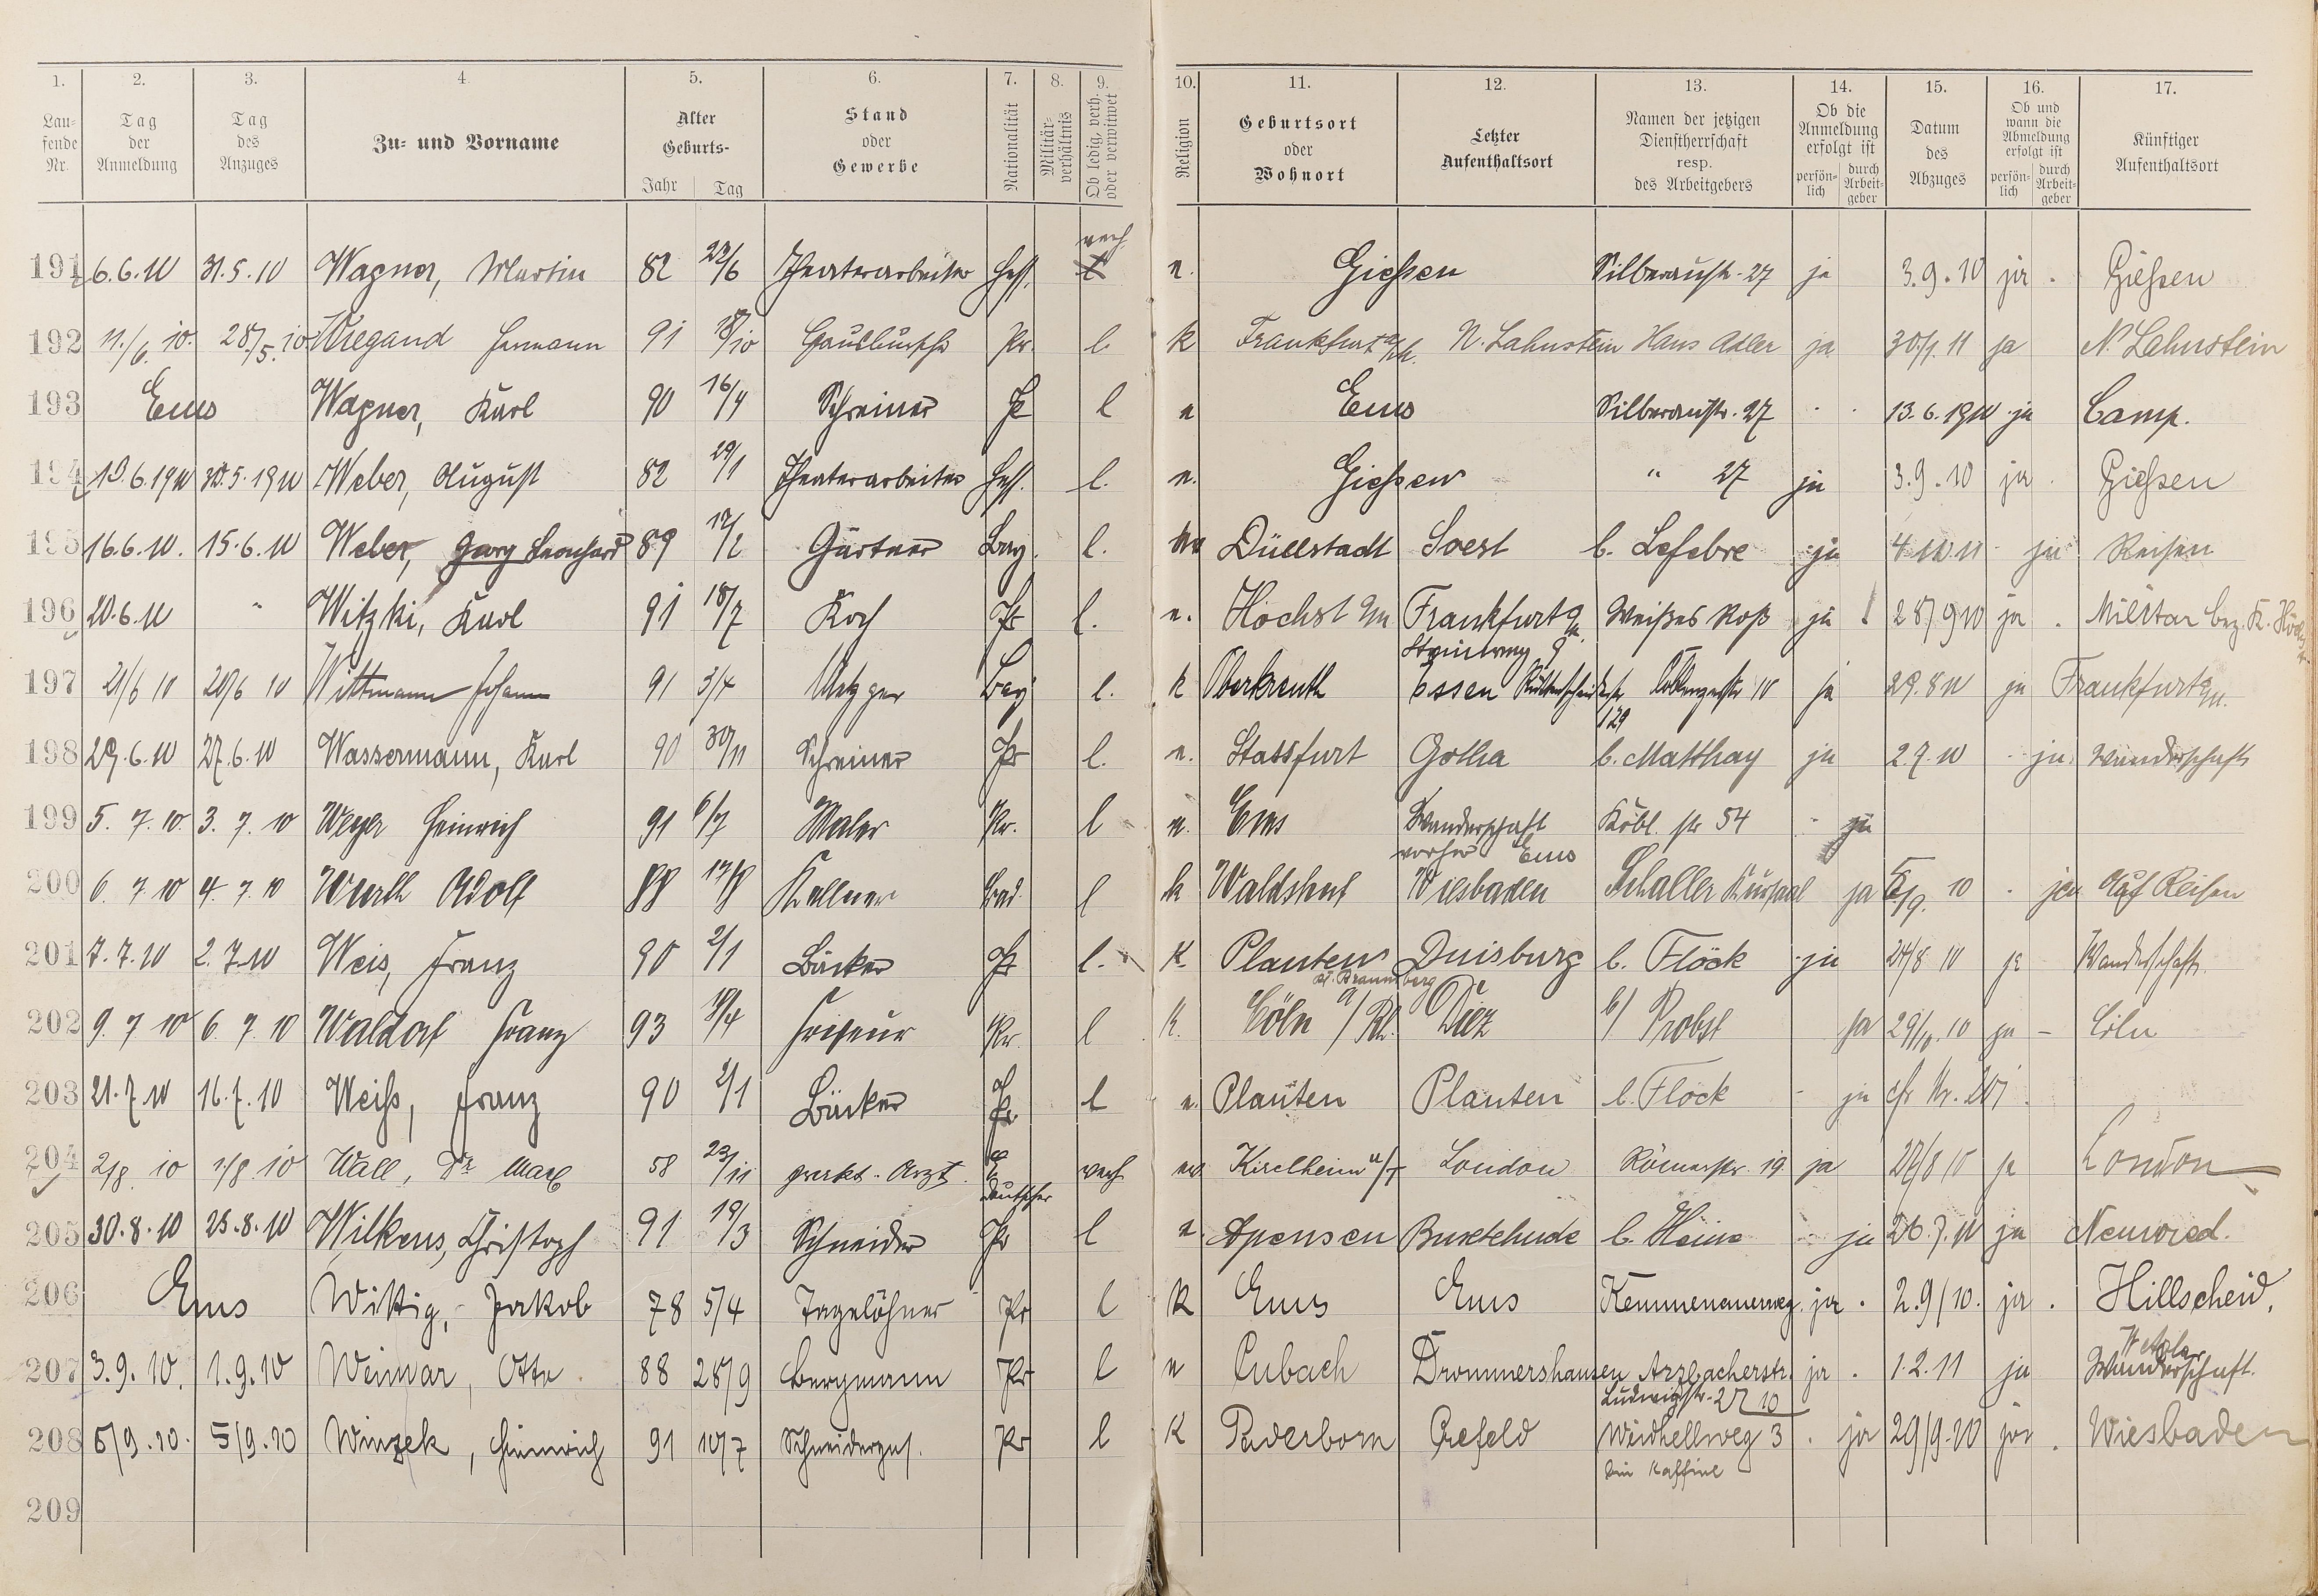 1. 2. 3. 4. 5. 6. 7. 8. 9. 10. 11. 12. 13. 14. 15. 16. 17.
Lau-
fende
Nr.
Tag
der
Anmeldung
Tag
des
Anzuges
Zu- und Vorname
Alter
Geburts-
Jahr Tag
Stand
oder
Gewerbe
Nationalität
Militär-
verhältnis
Ob ledig, verh.
oder verwitwet
Religion
Geburtsort
oder
Wohnort
Letzter
Aufenthaltsort
Namen der jetzigen
Dienstherrschaft
resp.
des Arbeitgebers
Ob die
Anmeldung
erfolgt ist
persön-
lich
durch
Arbeit-
geber
Datum
des
Abzuges
Ob und
wann die
Abmeldung
erfolgt ist
persön-
lich
durch
Arbeit-
geber
Künftiger
Aufenthaltsort
verh.
191 6.6.10 31.5.10 Wagner, Martin 82 22/6 Theaterarbeiter Hess. e. Giessen Silberaustr. 27 ja 3.9.10 ja. Giessen
192 11./6. 10. 28/5. 10 Wiegand Hermann 91 Hausbursche Pr. l. k Frankfurt N. Lahnstein Hans Adler ja 30/1. 11 ja N. Lahnstein
193 Ems Wagner, Karl 90 16/4 Schreiner Pr l e Ems Silberaustr. 27 13.6.1910 ja Camp.
194 10.6.1910 30.5.1910 Weber, August 82 29/1 Theaterarbeiter Hess. l. e. Giessen " 27 ja 3.9.10 ja. Giessen
195 16.6.10. 15.6.10 Weber, Georg Leonhard 89 17/2 Gärtner Bay. l. Düllstadt Soest b. Lefebre ja 4.10.11 ja Reisen
196 20.6.10 " Witzki, Karl 91 18/7 Koch Pr l. e. Höchst a/m Frankfurt a/m. Weißes Roß ja 28/9 10 ja. Militär bez. K.
Steinweg 9
197 21/6 10 20/6 10 Wittmann Johann 91 3/4 Metzger Bay l. k Oberkreuth Essen Coblenzerstr 10 ja 29.8 10 ja Frankfurt a/m.
129
198 29.6.10 27.6.10 Wassermann, Karl 90 30/11 Schreiner Pr l. e. Stassfurt Gotha b. Matthay ja 2.7.10 ja Wanderschaft
199 5. 7. 10. 3. 7. 10 Weyer Heinrich 91 6/7 Maler Pr. l e. Ems Wanderschaft Kobl. str 54 ja
vorher Ems
200 6. 7 10 4. 7. 10 Adolf 88 17/8 Kellner Bad. l k Waldshut Wiesbaden Schaller Kursaal ja 10 ja Auf Reisen
201 7.7.10 2.7.10 Weis, Franz 90 2/1 Bäcker Pr l. K Plauten Duisburg b. Flöck ja 24/8 10 ja Wanderschaft.
Braunsberg
202 9. 7 10 6. 7. 10 Waldorf Franz 93 18/4 Friseur Pr. l k. Cöln a/Rh. Diez b/ Probst ja 29/10. 10 ja – Cöln
203 21.7.10 16.7.10 Weiss, Franz 90 2/1 Bäcker Pr. l e. Plauten Plauten b. Flöck ja cfr Nr. 201
204 2/8. 10 1/8. 10 Wall, Dr Max 58 23/11 prakt. Arzt verh ev. Kirchheim u/T London Römerstr. 19. ja 10 ja London
Deutscher
205 30.8.10 25.8.10 Wilkens, Christoph 91 19/3 Schneider Pr l e. Apensen Buxtehude b. Heine ja 26.7.10 ja Neuwied.
206 Ems Wittig, Jakob 78 5/4 Tagelöhner Pr l K Ems Ems Kemmenauerweg ja. 2.9/10. ja. Hillscheid.
Wetzlar
207 3.9.10. 1.9.10 Weimar, Otto 88 28/9 Bergmann Pr l e Cubach Drommershausen Arzbacherstr. ja. 1.2.11 ja Wanderschaft.
Ludwigstr. 27 10
208 5/9.10. 5/9.10 Winzek, Heinrich 91 10/7 Schneiderges. Pr l K Paderborn Crefeld Weidhellweg 3 ja 29/9.10 ja. Wiesbaden
209